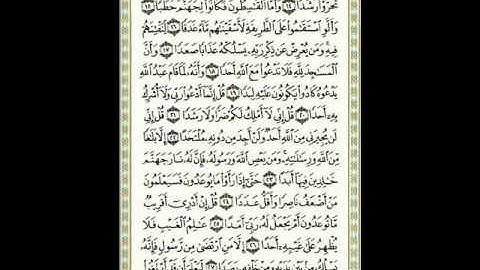 تَحَرَّوْا۟ رَشَدًا ١٤ وَأَمَّا ٱلْقَٰسِطُونَ فَكَانُوا۟ لِجَهَنَّمَ حَطَبًا ١٥
وَأَلَّوِ ٱسْتَقَٰمُوا۟ عَلَى ٱلطَّرِيقَةِ لَأَسْقَيْنَٰهُم مَّآءً غَدَقًا ١٦ لِّنَفْتِنَهُمْ
فِيهِ وَمَن يُعْرِضْ عَن ذِكْرِ رَبِّهِۦ يَسْلُكْهُ عَذَابًا صَعَدًا ١٧ وَأَنَّ
ٱلْمَسَٰجِدَ لِلَّهِ فَلَا تَدْعُوا۟ مَعَ ٱللَّهِ أَحَدًا ١٨ وَأَنَّهُۥ لَمَّا قَامَ عَبْدُ ٱللَّهِ
يَدْعُوهُ كَادُوا۟ يَكُونُونَ عَلَيْهِ لِبَدًا ١٩ قُلْ إِنَّمَآ أَدْعُوا۟ رَبِّى وَلَآ أُشْرِكُ
بِهِۦٓ أَحَدًا ٢٠ قُلْ إِنِّى لَآ أَمْلِكُ لَكُمْ ضَرًّا وَلَا رَشَدًا ٢١ قُلْ إِنِّى
لَن يُجِيرَنِى مِنَ ٱللَّهِ أَحَدٌ وَلَنْ أَجِدَ مِن دُونِهِۦ مُلْتَحَدًا ٢٢ إِلَّا بَلَٰغًا
مِّنَ ٱللَّهِ وَرِسَٰلَٰتِهِۦ وَمَن يَعْصِ ٱللَّهَ وَرَسُولَهُۥ فَإِنَّ لَهُۥ نَارَ جَهَنَّمَ
خَٰلِدِينَ فِيهَآ أَبَدًا ٢٣ حَتَّىٰٓ إِذَا رَأَوْا۟ مَا يُوعَدُونَ فَسَيَعْلَمُونَ
مَنْ أَضْعَفُ نَاصِرًا وَأَقَلُّ عَدَدًا ٢٤ قُلْ إِنْ أَدْرِىٓ أَقَرِيبٌ
مَّا تُوعَدُونَ أَمْ يَجْعَلُ لَهُۥ رَبِّىٓ أَمَدًا ٢٥ عَٰلِمُ ٱلْغَيْبِ فَلَا
يُظْهِرُ عَلَىٰ غَيْبِهِۦٓ أَحَدًا ٢٦ إِلَّا مَنِ ٱرْتَضَىٰ مِن رَّسُولٍ فَإِنَّهُۥ
يَسْلُكُ مِنۢ بَيْنِ يَدَيْهِ وَمِنْ خَلْفِهِۦ رَصَدًا ٢٧ لِّيَعْلَمَ أَن قَدْ أَبْلَغُوا۟